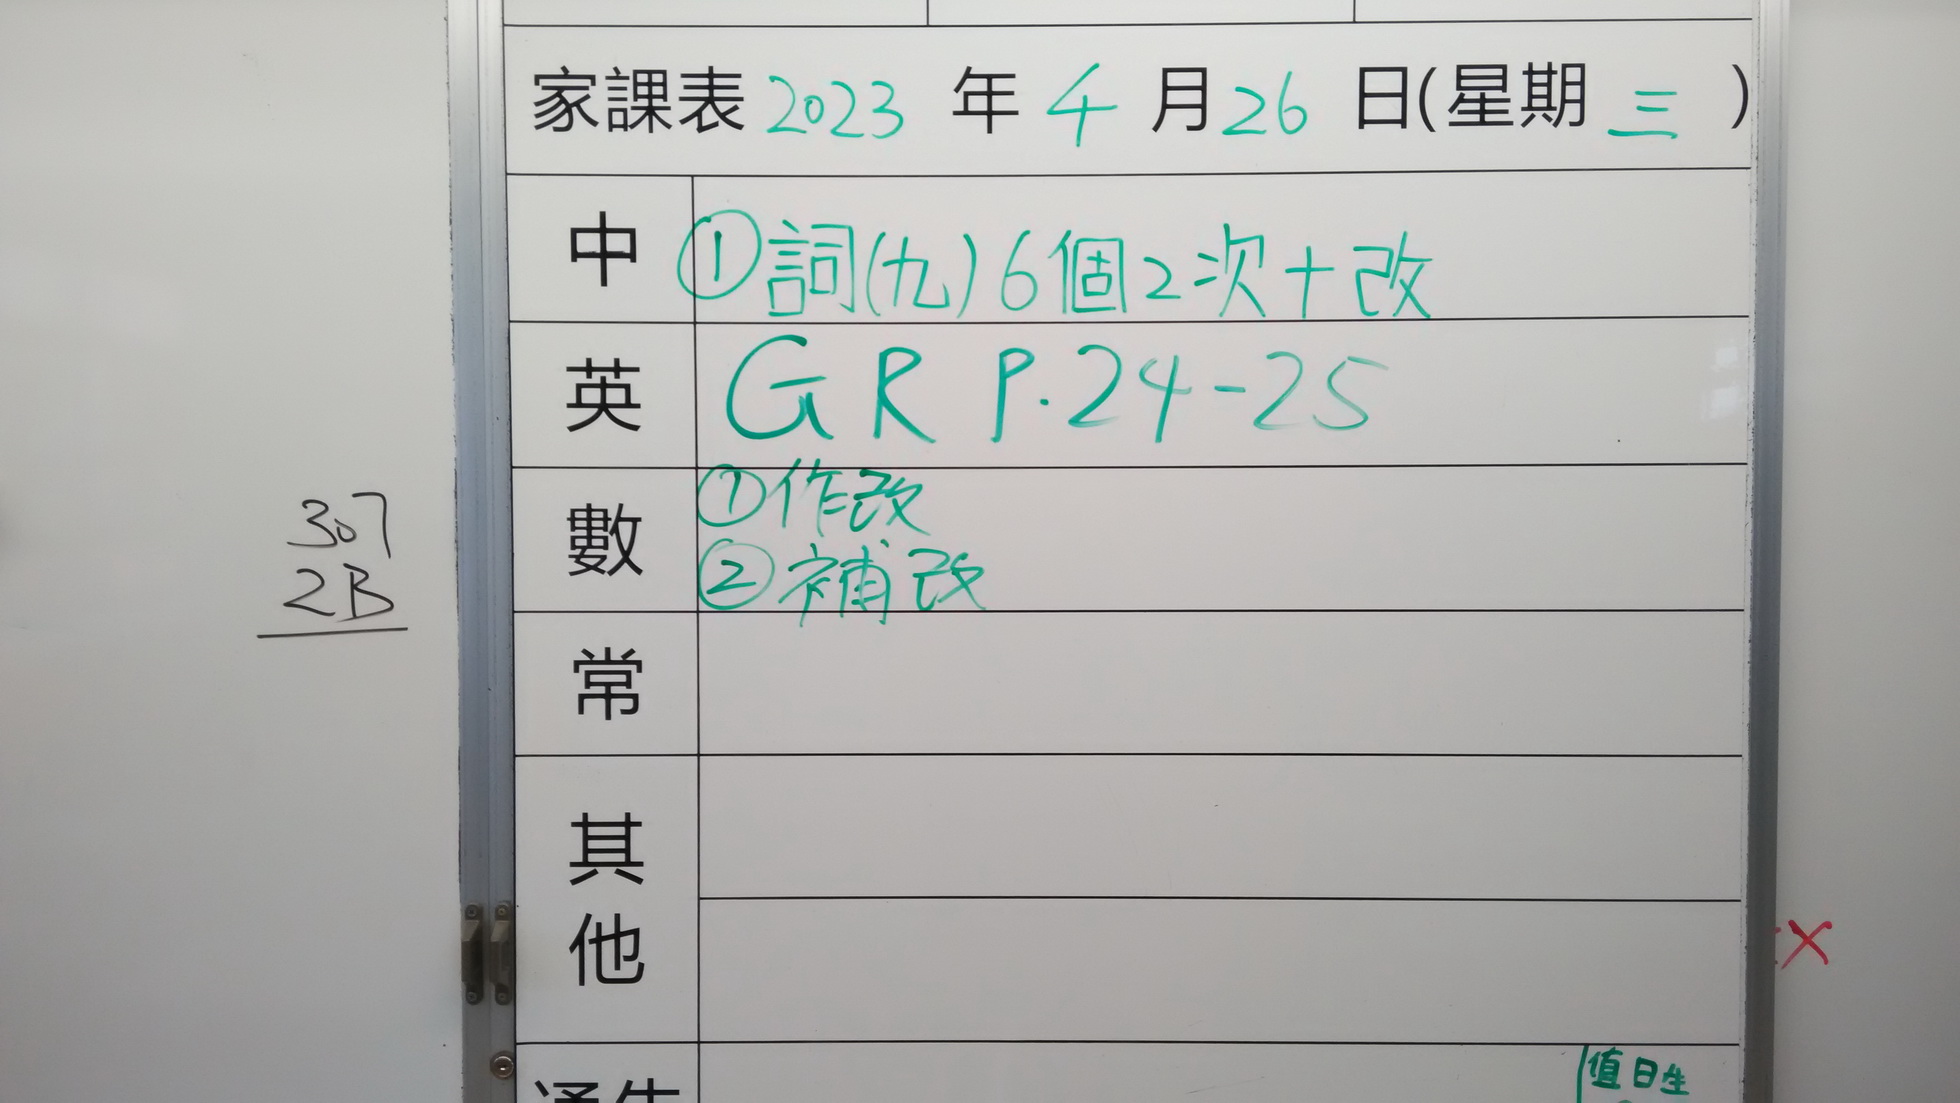 家課表 2023 年 4 月 26 日(星期 三 )
中 ①詞(九)6個2次+改
英 GR P.24-25
數 ①作改
②補改
常
其他
通告
值日生
307
2B
X